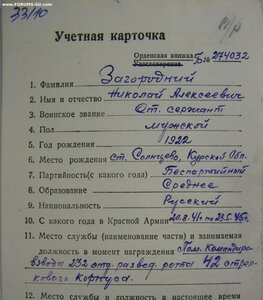 www.FORUMS-SU.com
33/10
в/р
Учетная карточка
Орденская книжка Б № 274032
Удостоверение
1. Фамилия Загородний
2. Имя и отчество Николай Алексеевич
3. Воинское звание Ст. сержант
4. Пол мужской
5. Год рождения 1922
6. Место рождения ст. Солнцево, Курской Обл.
7. Партийность (с какого года) Беспартийный
8. Образование Среднее
9. Национальность Русский
10. С какого года в Красной Армии 20.8.41г по 23.5.46г.
11. Место службы (наименование части) и занимаемая
должность в момент награждения Пом. Командира
взвода 232 отд. развед. роты 42 стрел-
кового корпуса.
12. Место службы и должность в настоящее время